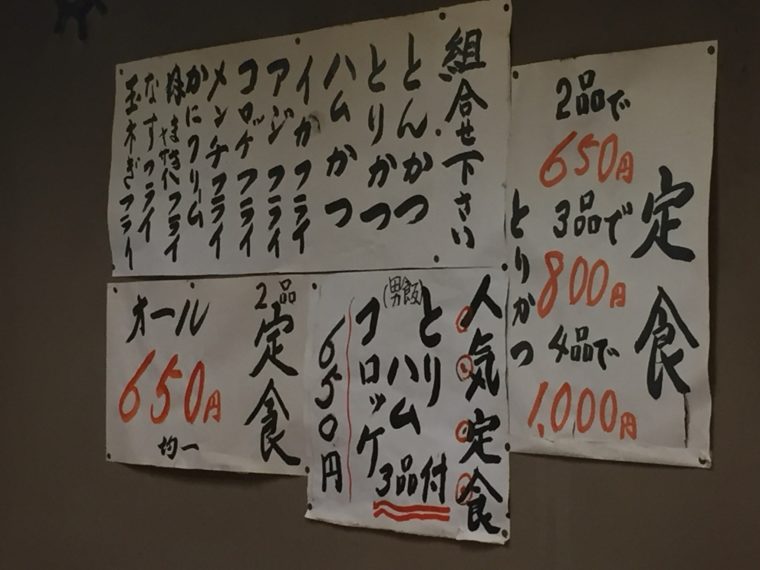 組合せ下さい
とんかつ
とりかつ
ハムかつ
イカフライ
アジフライ
コロッケフライ
メンチフライ
かにクリーム
なすフライ
玉ネギフライ
定食
2品で
650円
3品で
800円
4品で
1,000円
とりかつ
人気定食
(男飯)
とりハム
コロッケ
3品付
650円
2品
定食
オール
650円
均一